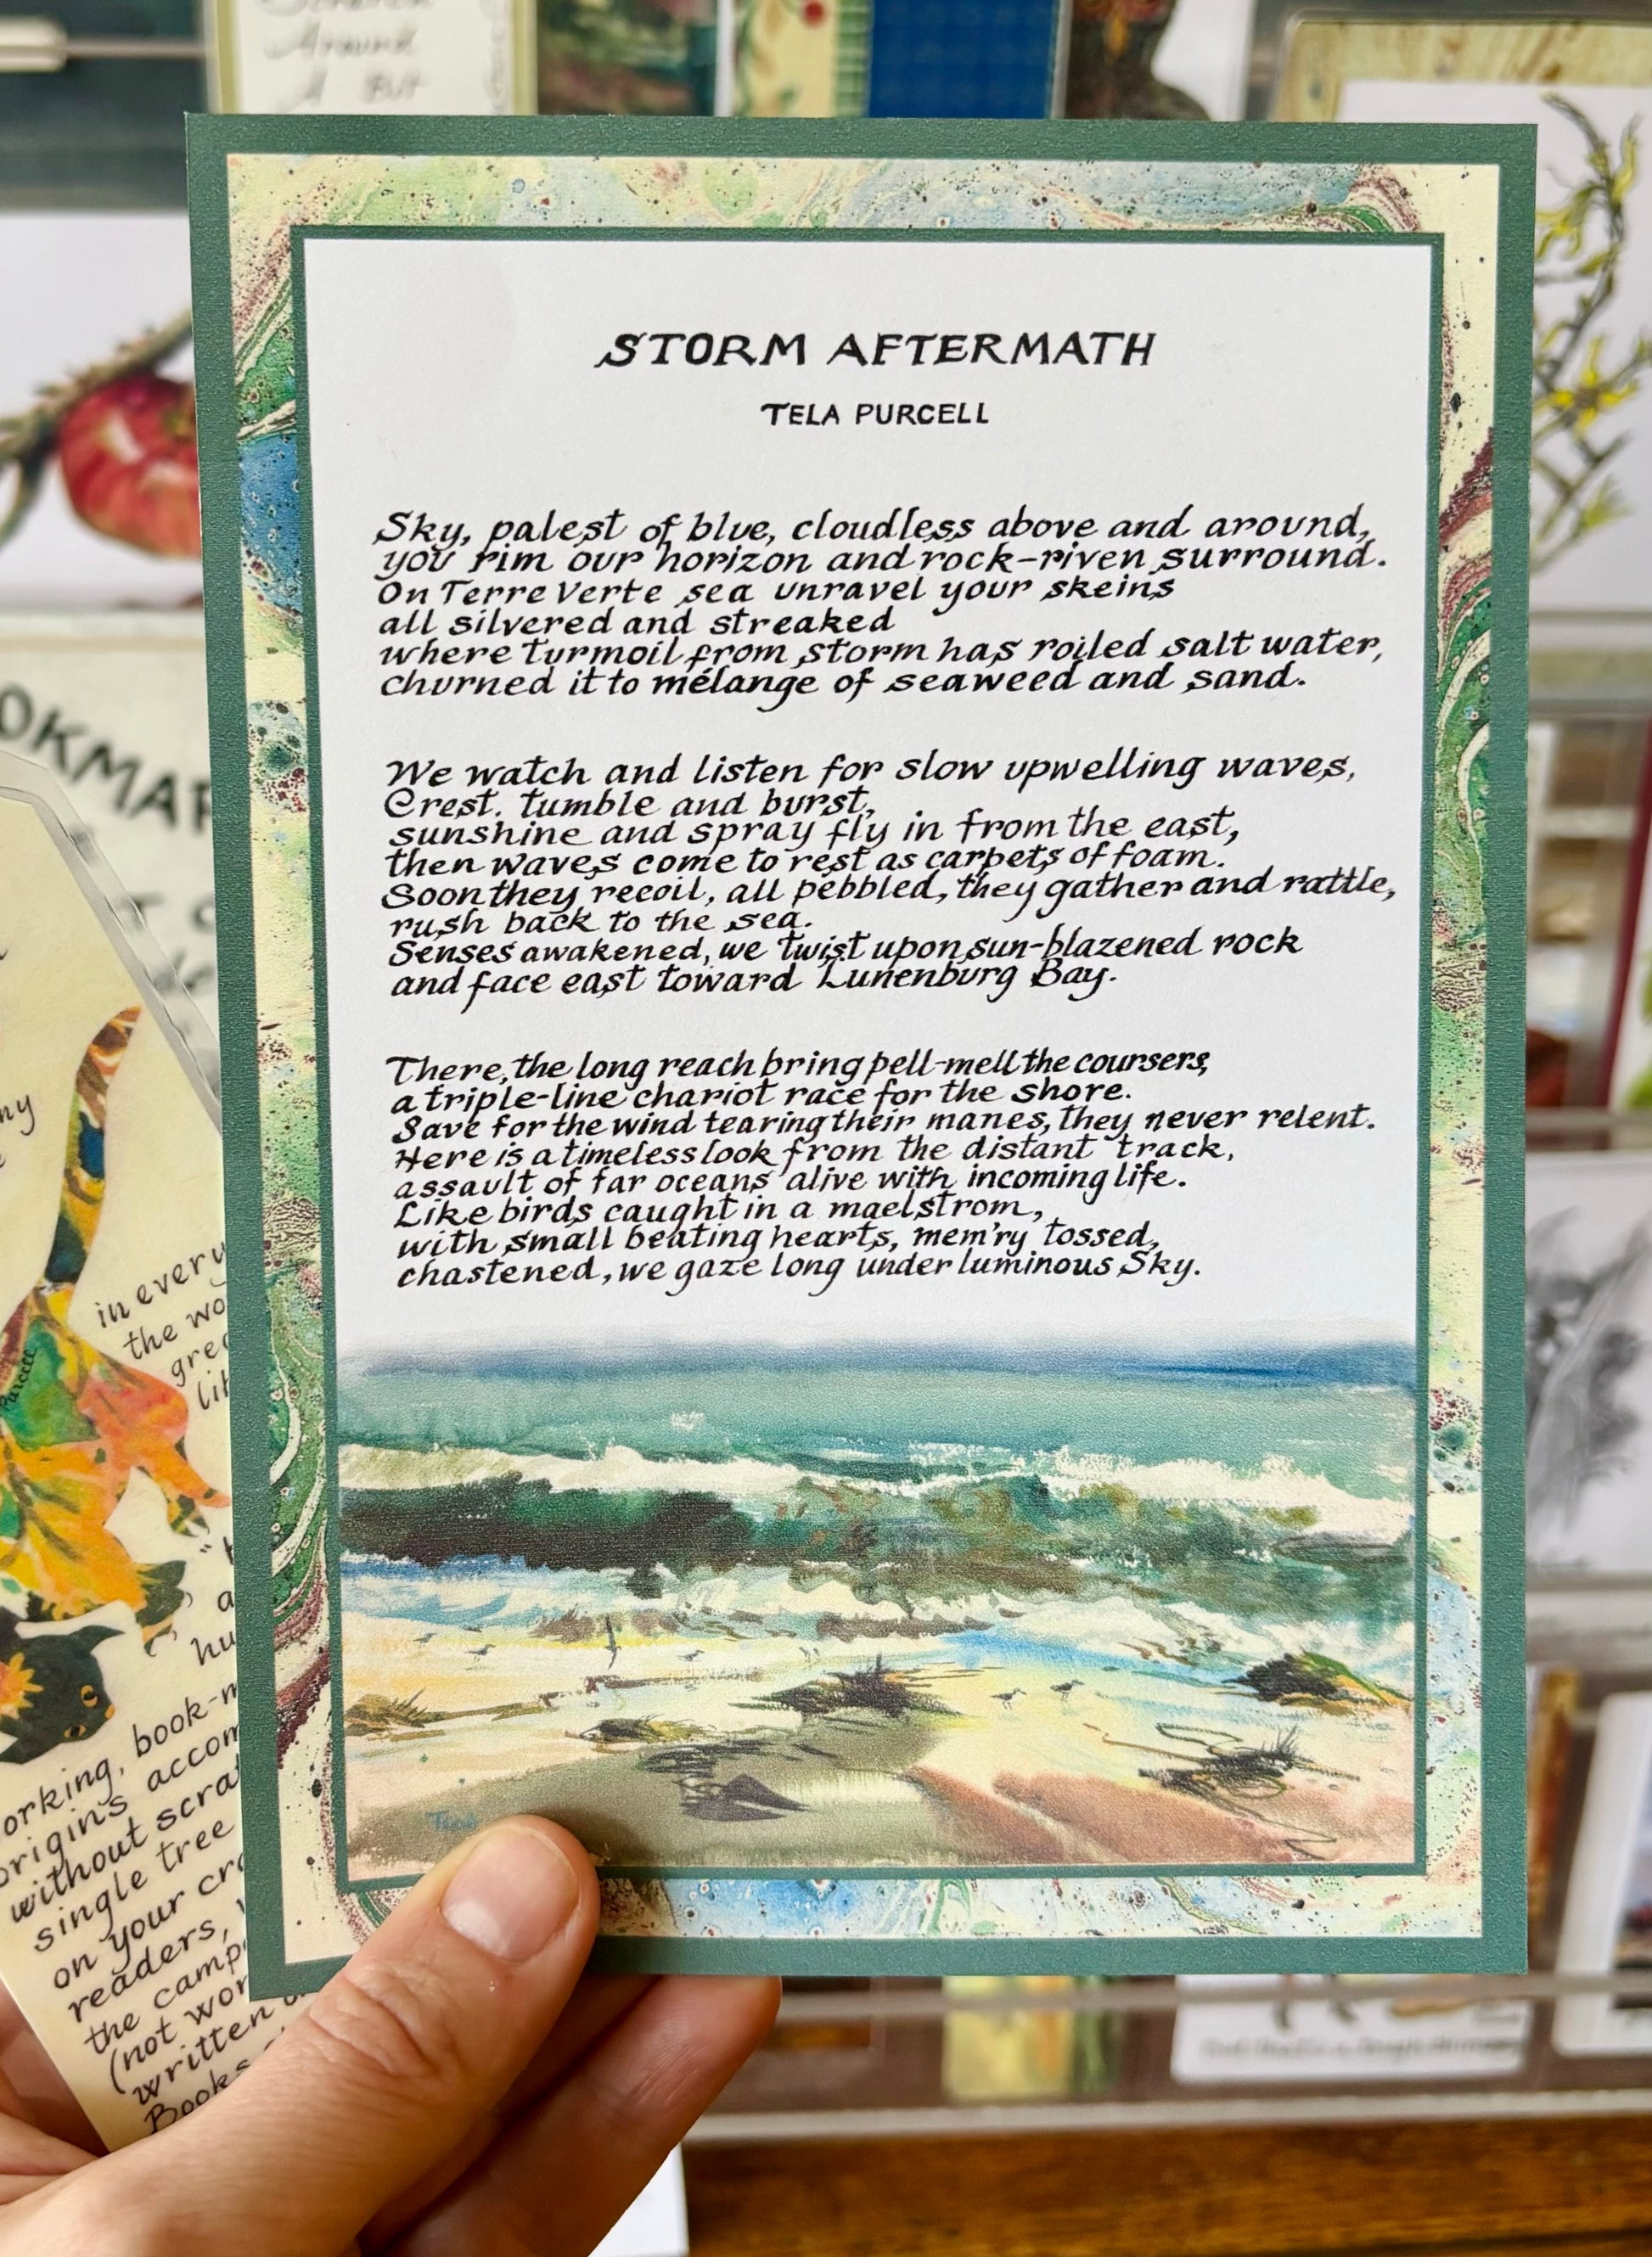 Around
A Bit
STORM AFTERMATH
TELA PURCELL
Sky, palest of blue, cloudless above and around,
you rim our horizon and rock-riven surround.
On Terre Verte sea unravel your skeins
all silvered and streaked
where turmoil from storm has roiled salt water,
churned it to mélange of seaweed and sand.
We watch and listen for slow upwelling waves,
Crest. tumble and burst,
sunshine and spray fly in from the east,
then waves come to rest as carpets of foam.
Soon they recoil, all pebbled, they gather and rattle,
rush back to the sea.
Senses awakened, we twist upon sun-blazened rock
and face east toward Lunenburg Bay.
There, the long reach bring pell-mell the coursers,
a triple-line chariot race for the shore.
Save for the wind tearing their manes, they never relent.
Here is a timeless look from the distant track,
assault of far oceans alive with incoming life.
Like birds caught in a maelstrom,
with small beating hearts, mem'ry tossed,
chastened, we gaze long under luminous Sky.
OKMAR
my
in every
the wo
gre
lit
Purcell
a
hu
orking, book-m
origins accom
without scrat
single tree
on your cr
readers,
the camp
(not wor
written
Books